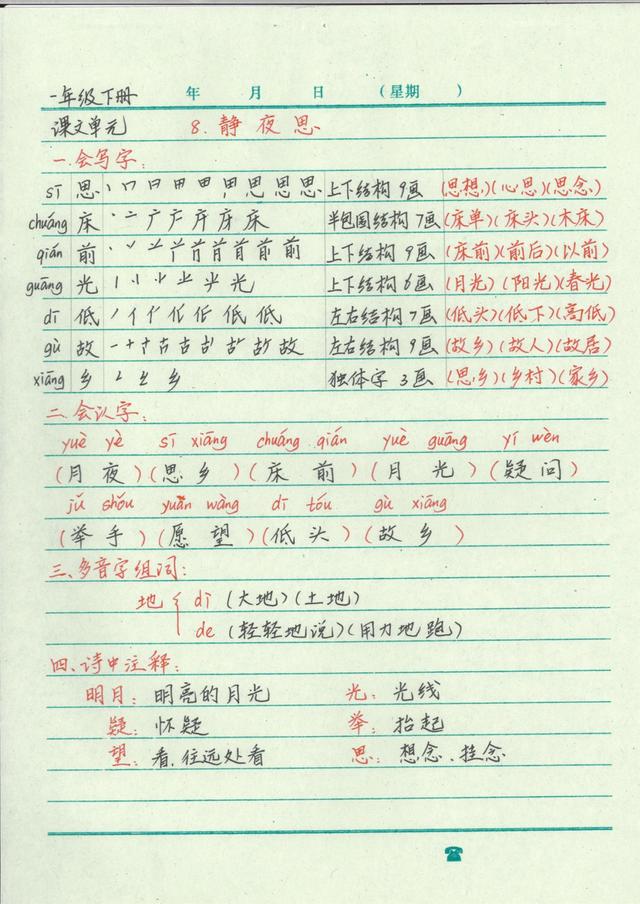 一年级下册 年 月 日 (星期 )
课文单元 8.静夜思
一.会写字:
sī 思 上下结构 9画 (思想)(心思)(思念)
chuáng 床 半包围结构 7画 (床单)(床头)(木床)
qián 前 上下结构 9画 (床前)(前后)(以前)
guāng 光 上下结构 6画 (月光)(阳光)(春光)
dī 低 左右结构 7画 (低头)(低下)(高低)
gù 故 左右结构 9画 (故乡)(故人)(故居)
xiāng 乡 独体字 3画 (思乡)(乡村)(家乡)
二.会认字:
yuè yè sī xiāng chuáng qián yuè guāng yí wèn
(月夜)(思乡)(床前)(月光)(疑问)
jǔ shǒu yuàn wàng dī tóu gù xiāng
(举手)(愿望)(低头)(故乡)
三.多音字组词:
地 dì (大地)(土地)
de (轻轻地说)(用力地跑)
四.诗中注释:
明月: 明亮的月光 光: 光线
疑: 怀疑 举: 抬起
望: 看.往远处看 思: 想念、挂念